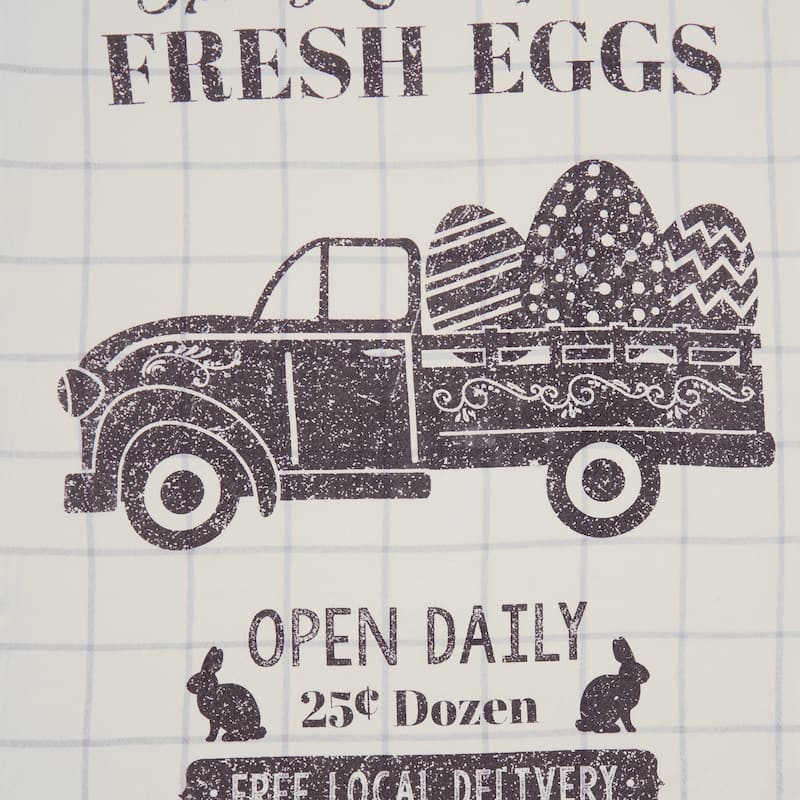 FRESH EGGS
OPEN DAILY
25¢ Dozen
FREE LOCAL DELIVERY